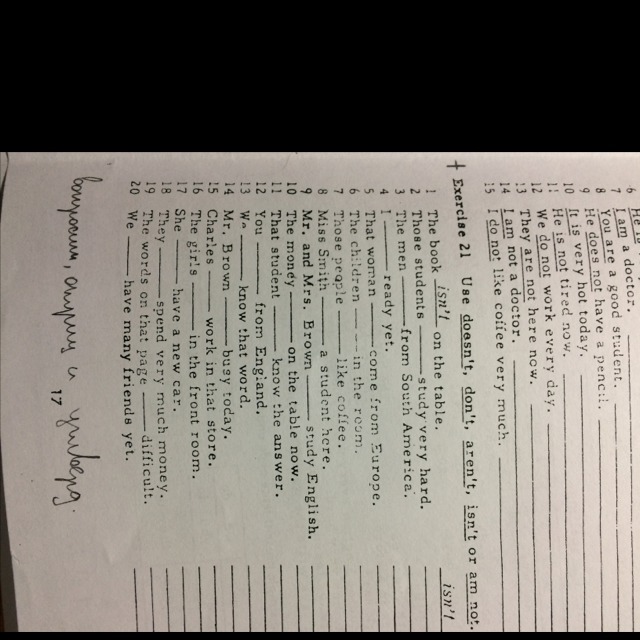 6 He is
7 I am a doctor.
8 You are a good student.
9 He does not have a pencil.
10 It is very hot today.
11 He is not tired now.
12 We do not work every day.
13 They are not here now.
14 I am not a doctor.
15 I do not like coffee very much.
+ Exercise 21 Use doesn't, don't, aren't, isn't or am not.
1 The book isn't on the table. isn't
2 Those students ____ study very hard.
3 The men ____ from South America.
4 I ____ ready yet.
5 That woman ____ come from Europe.
6 The children ____ in the room.
7 Those people ____ like coffee.
8 Miss Smith ____ a student here.
9 Mr. and Mrs. Brown ____ study English.
10 The money ____ on the table now.
11 That student ____ know the answer.
12 You ____ from England.
13 We ____ know that word.
14 Mr. Brown ____ busy today.
15 Charles ____ work in that store.
16 The girls ____ in the front room.
17 She ____ have a new car.
18 They ____ spend very much money.
19 The words on that page ____ difficult.
20 We ____ have many friends yet.
17